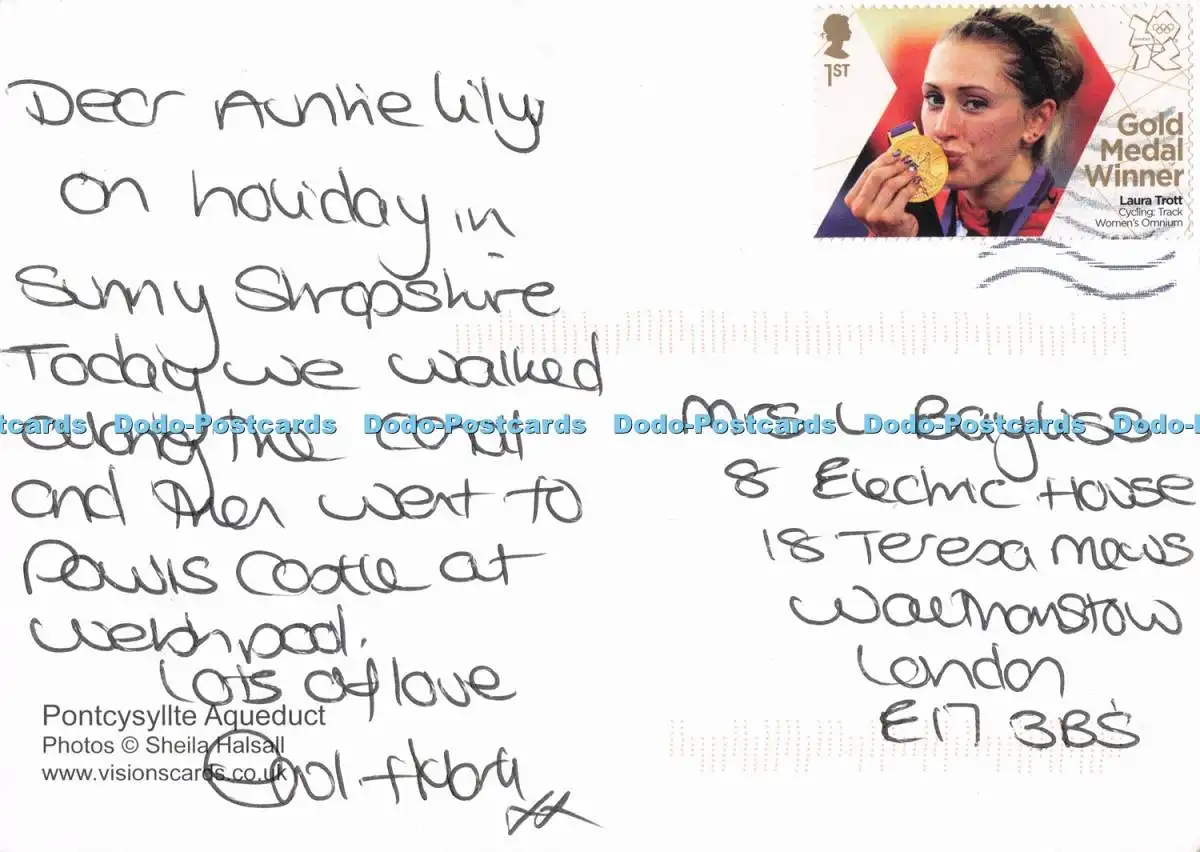 Dear Auntie Lily
on holiday in
Sunny Shropshire
Today we walked
along the canal
and then went to
Powis Castle at
Welshpool.
Lots of love
xx
Pontcysyllte Aqueduct
Photos © Sheila Halsall
www.visionscards.co.uk
1ST
Gold
Medal
Winner
Laura Trott
Cycling: Track
Women's Omnium
Mrs L Bayliss
8 Electric House
18 Teresa Mews
Walthamstow
London
E17 3BS
Dodo-Postcards Dodo-Postcards Dodo-Postcards Dodo-Postcards